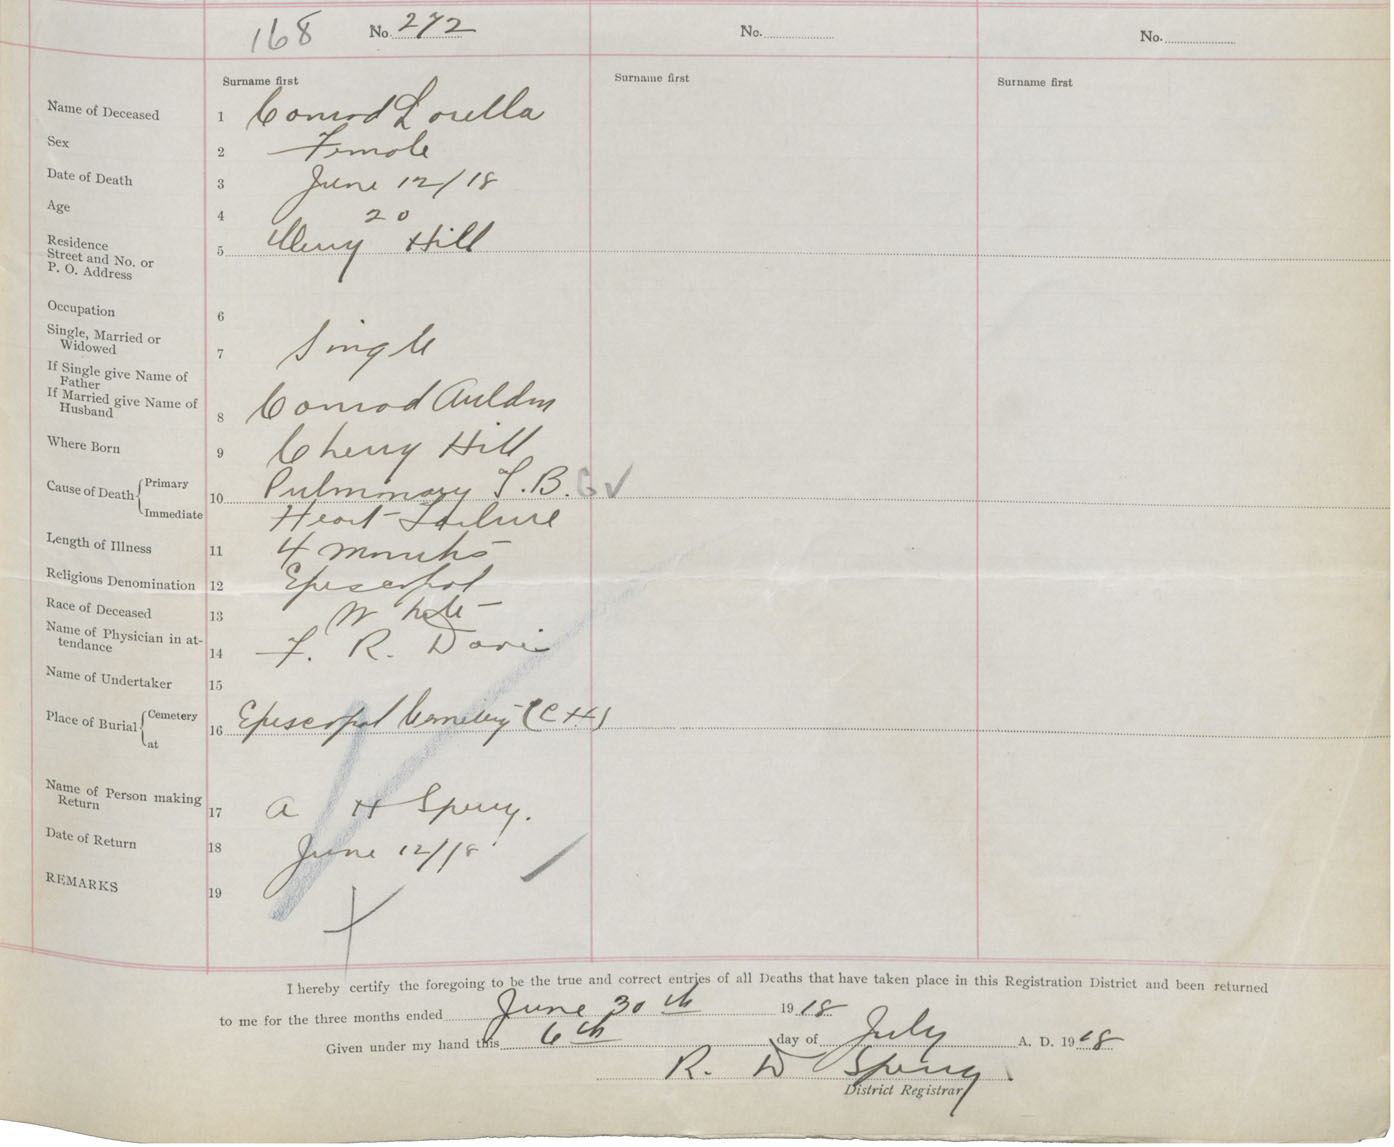 168 No. 272 No. No.
Surname first Surname first Surname first
Name of Deceased 1 Conrod Lorella
Sex 2 Female
Date of Death 3 June 12/18
Age 4 20
Residence
Street and No. or
P. O. Address 5 Merry Hill
Occupation 6
Single, Married or
Widowed 7 Single
If Single give Name of
Father
If Married give Name of
Husband 8 Conrod
Where Born 9 Cherry Hill
Cause of Death Primary 10 Pulmonary T.B. G
Immediate Heart Failure
Length of Illness 11 4 months
Religious Denomination 12 Episcopal
Race of Deceased 13 White
Name of Physician in at-
tendance 14 F. R. Davis
Name of Undertaker 15
Place of Burial Cemetery 16 Episcopal Cemetery (C H)
at
Name of Person making
Return 17 A H Sperry.
Date of Return 18 June 12/18
REMARKS 19
I hereby certify the foregoing to be the true and correct entries of all Deaths that have taken place in this Registration District and been returned
to me for the three months ended June 30th 1918
Given under my hand this 6th day of July A. D. 1918
R. D Sperry.
District Registrar